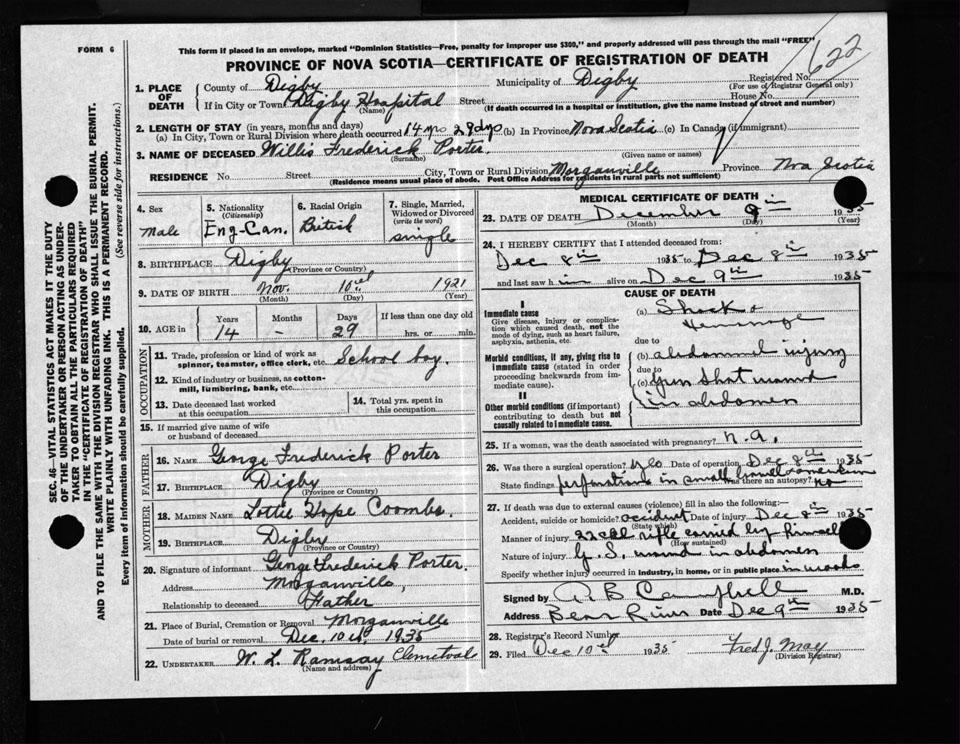 FORM 6
This form if placed in an envelope, marked "Dominion Statistics—Free, penalty for improper use $300," and properly addressed will pass through the mail "FREE"
622
PROVINCE OF NOVA SCOTIA—CERTIFICATE OF REGISTRATION OF DEATH
1. PLACE OF DEATH
County of Digby Municipality of Digby Registered No.
(For use of Registrar General only)
If in City or Town Digby Hospital Street House No.
(Name) (If death occurred in a hospital or institution, give the name instead of street and number)
2. LENGTH OF STAY (in years, months and days)
(a) In City, Town or Rural Division where death occurred 14 yrs 29 dys (b) In Province Nova Scotia (c) In Canada (if immigrant)
3. NAME OF DECEASED Willis Frederick Porter.
(Surname) (Given name or names)
RESIDENCE No. Street City, Town or Rural Division Morganville Province Nova Scotia
(Residence means usual place of abode. Post Office Address for residents in rural parts not sufficient)
4. Sex
Male
5. Nationality
(Citizenship)
Eng-Can.
6. Racial Origin
British
7. Single, Married, Widowed or Divorced
(write the word)
single
8. BIRTHPLACE Digby
(Province or Country)
9. DATE OF BIRTH Nov. 10th 1921
(Month) (Day) (Year)
10. AGE in
Years Months Days If less than one day old
14 - 29 hrs. or min.
OCCUPATION
11. Trade, profession or kind of work as spinner, teamster, office clerk, etc. School boy.
12. Kind of industry or business, as cotton-mill, lumbering, bank, etc.
13. Date deceased last worked at this occupation
14. Total yrs. spent in this occupation.
15. If married give name of wife or husband of deceased
FATHER
16. NAME George Frederick Porter
17. BIRTHPLACE Digby
(Province or Country)
MOTHER
18. MAIDEN NAME Lottie Hope Coombs.
19. BIRTHPLACE Digby
(Province or Country)
20. Signature of informant George Frederick Porter.
Address Morganville,
Relationship to deceased Father
21. Place of Burial, Cremation or Removal Morganville
Date of burial or removal Dec. 10th, 1935
22. UNDERTAKER W. L. Ramsay
(Name and address)
MEDICAL CERTIFICATE OF DEATH
23. DATE OF DEATH December 9th 1935
(Month) (Day) (Year)
24. I HEREBY CERTIFY that I attended deceased from:
Dec 8th 1935 to Dec 8th 1935
and last saw him alive on Dec 9th 1935
CAUSE OF DEATH
I
Immediate cause
Give disease, injury or complication which caused death, not the mode of dying, such as heart failure, asphyxia, asthenia, etc.
(a) Shock &
Hemorrage
due to
Morbid conditions, if any, giving rise to immediate cause (stated in order proceeding backwards from immediate cause).
(b) abdominal injury
due to
(c) gun shot wound
in abdomen
II
Other morbid conditions (if important) contributing to death but not causally related to immediate cause.
25. If a woman, was the death associated with pregnancy? n.a.
26. Was there a surgical operation? yes Date of operation Dec 8th 1935
State findings perforations in small bowel Was there an autopsy? no
27. If death was due to external causes (violence) fill in also the following:—
Accident, suicide or homicide? accident Date of injury Dec 8th 1935
(State which)
Manner of injury 22 cal rifle carried by himself
(How sustained)
Nature of injury G. S. wound in abdomen
Specify whether injury occurred in Industry, in home, or in public place in woods
Signed by A. B Campbell M.D.
Address Bear River Date Dec 9th 1935
28. Registrar's Record Number
29. Filed Dec 10th 1935 Fred J. May
(Division Registrar)
SEC. 46—VITAL STATISTICS ACT MAKES IT THE DUTY
OF THE UNDERTAKER OR PERSON ACTING AS UNDER-
TAKER TO OBTAIN ALL THE PARTICULARS REQUIRED
IN THE "CERTIFICATE OF REGISTRATION OF DEATH"
AND TO FILE THE SAME WITH THE DIVISION REGISTRAR WHO SHALL ISSUE THE BURIAL PERMIT.
WRITE PLAINLY WITH UNFADING INK. THIS IS A PERMANENT RECORD.
Every item of information should be carefully supplied. (See reverse side for instructions.)